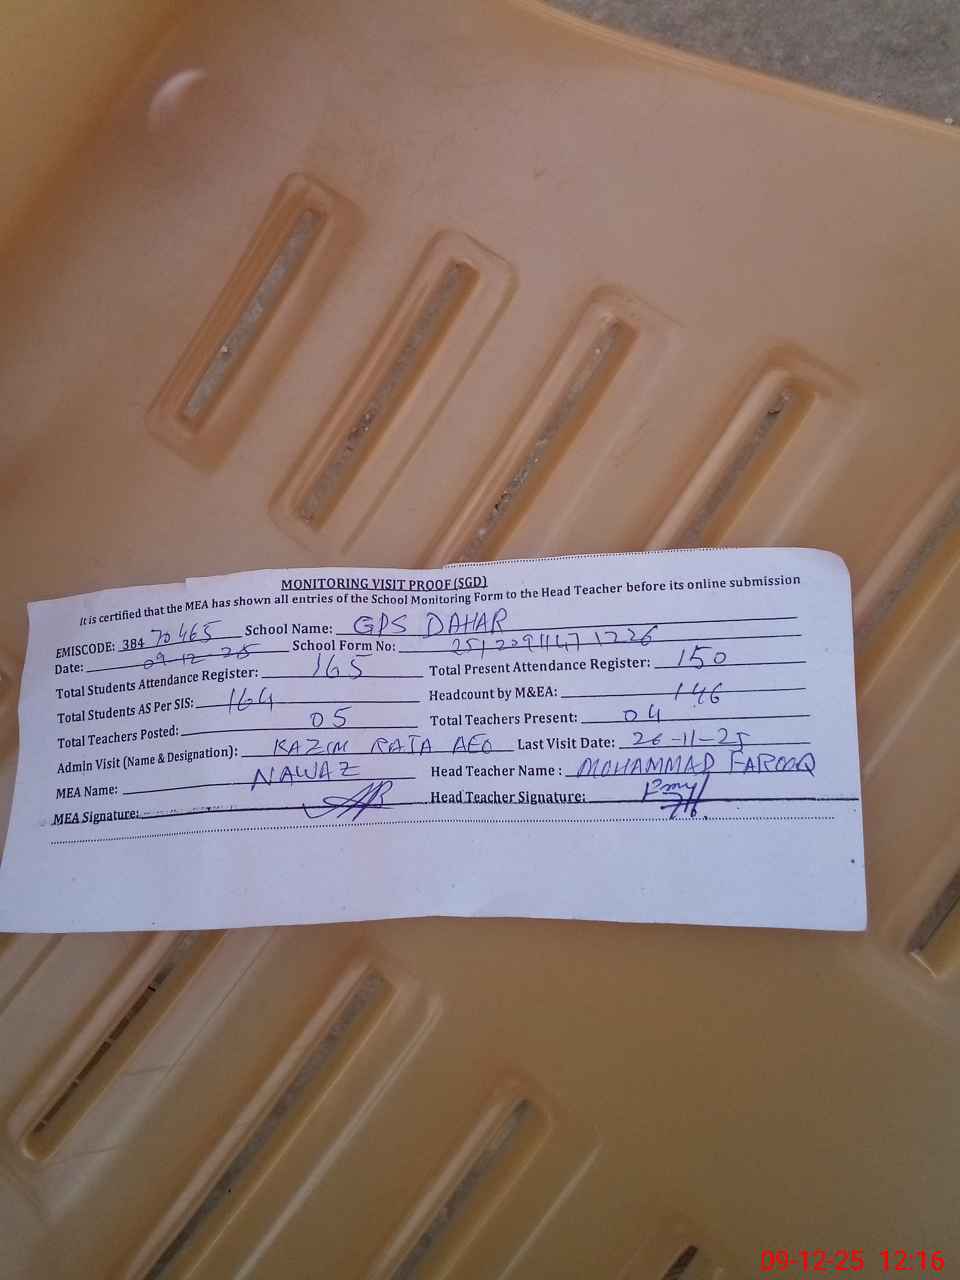 MONITORING VISIT PROOF (SGD)
It is certified that the MEA has shown all entries of the School Monitoring Form to the Head Teacher before its online submission
EMISCODE: 384 70465 School Name: GPS DAHAR
Date: 09-12-25 School Form No:
Total Students Attendance Register: 165 Total Present Attendance Register: 150
Total Students AS Per SIS: 164 Headcount by M&EA: 146
Total Teachers Posted: 05 Total Teachers Present: 04
Admin Visit (Name & Designation): KAZIM RAJA AEO Last Visit Date: 26-11-25
MEA Name: NAWAZ Head Teacher Name: MOHAMMAD FAROOQ
MEA Signature: Head Teacher Signature:
09-12-25 12:16